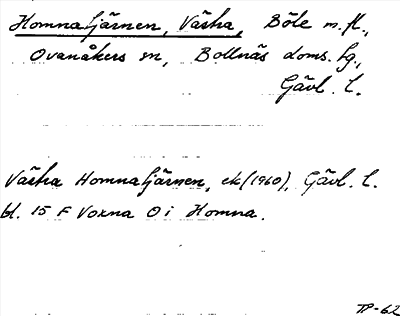 Homnatjärnen, Västra, Böle m.fl.,
Ovanåkers sn, Bollnäs doms. hg.,
Gävl. l.
Västra Homnatjärnen, ek (1960), Gävl. l.
bl. 15 F Voxna O i Homna.
TP-62